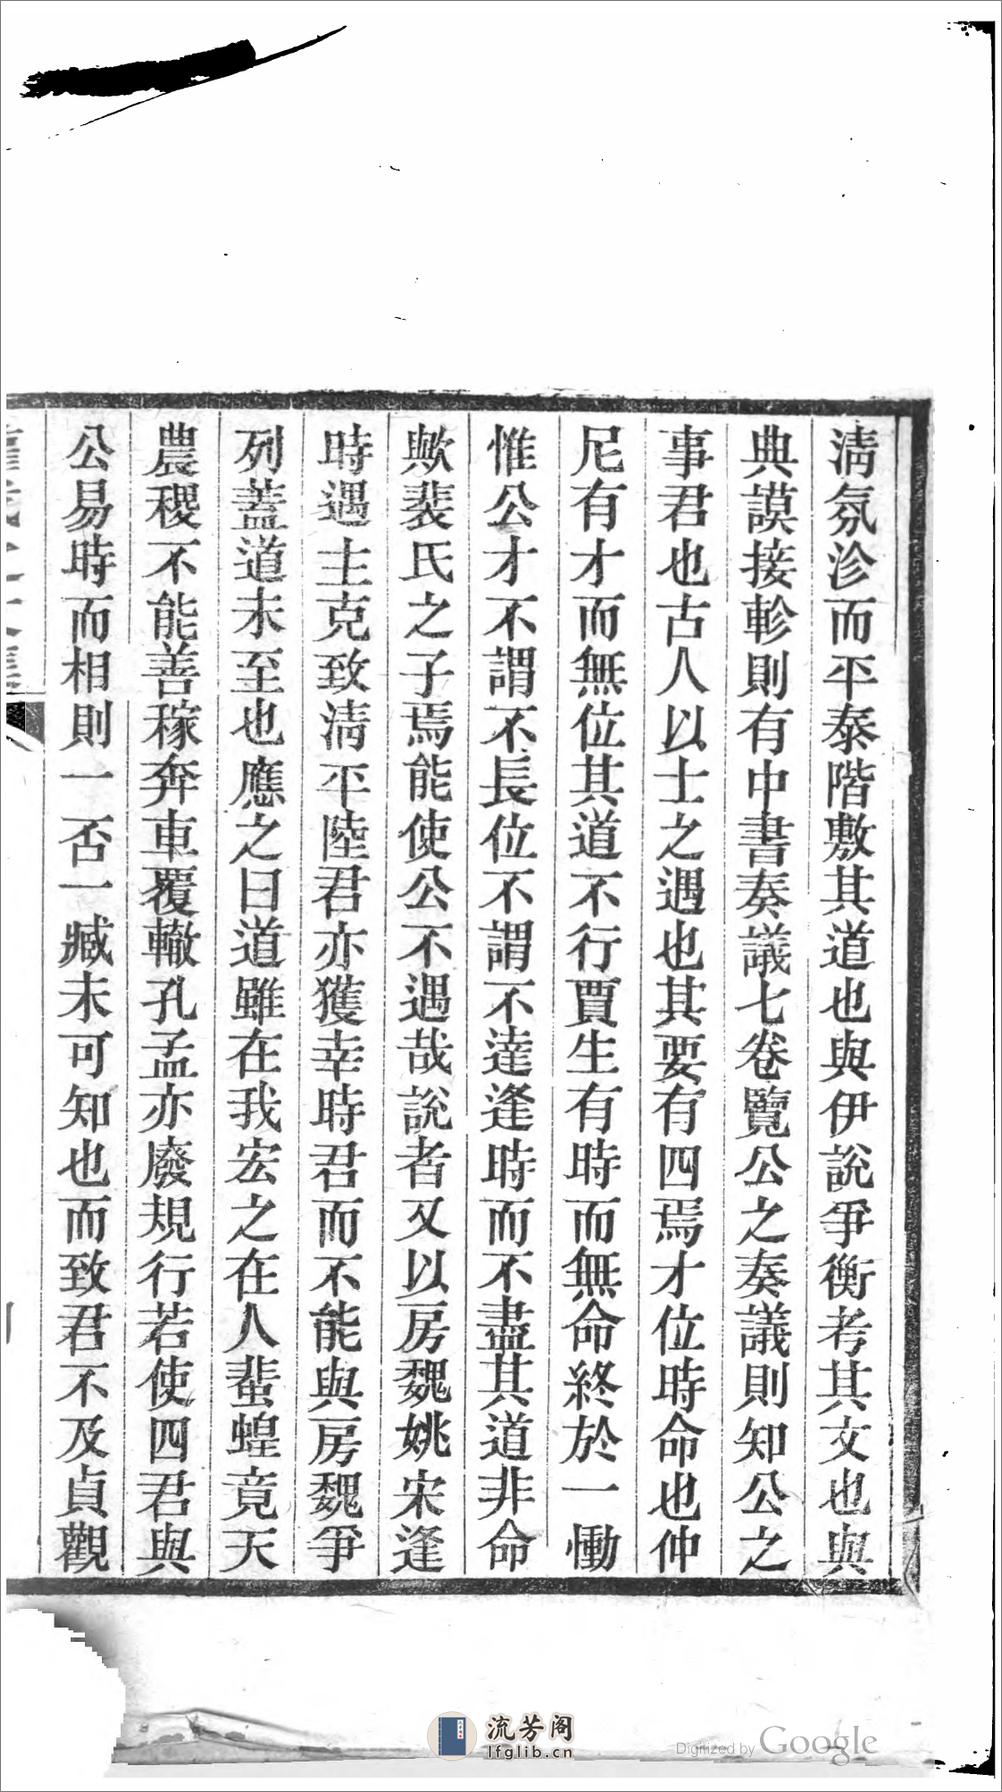 淸氛沴而平泰階敷其道也與伊說爭衡考其文也與
典謨接軫則有中書奏議七卷覽公之奏議則知公之
事君也古人以士之遇也其要有四焉才位時命也仲
尼有才而無位其道不行賈生有時而無命終於一慟
惟公才不謂不長位不謂不達逢時而不盡其道非命
歟裴氏之子焉能使公不遇哉說者又以房魏姚宋逢
時遇主克致淸平陸君亦獲幸時君而不能與房魏爭
列蓋道未至也應之曰道雖在我宏之在人蜚蝗竟天
農稷不能善稼奔車覆轍孔孟亦廢規行若使四君與
公易時而相則一否一臧未可知也而致君不及貞觀
流芳阁
lfglib.cn
Digitized by Google